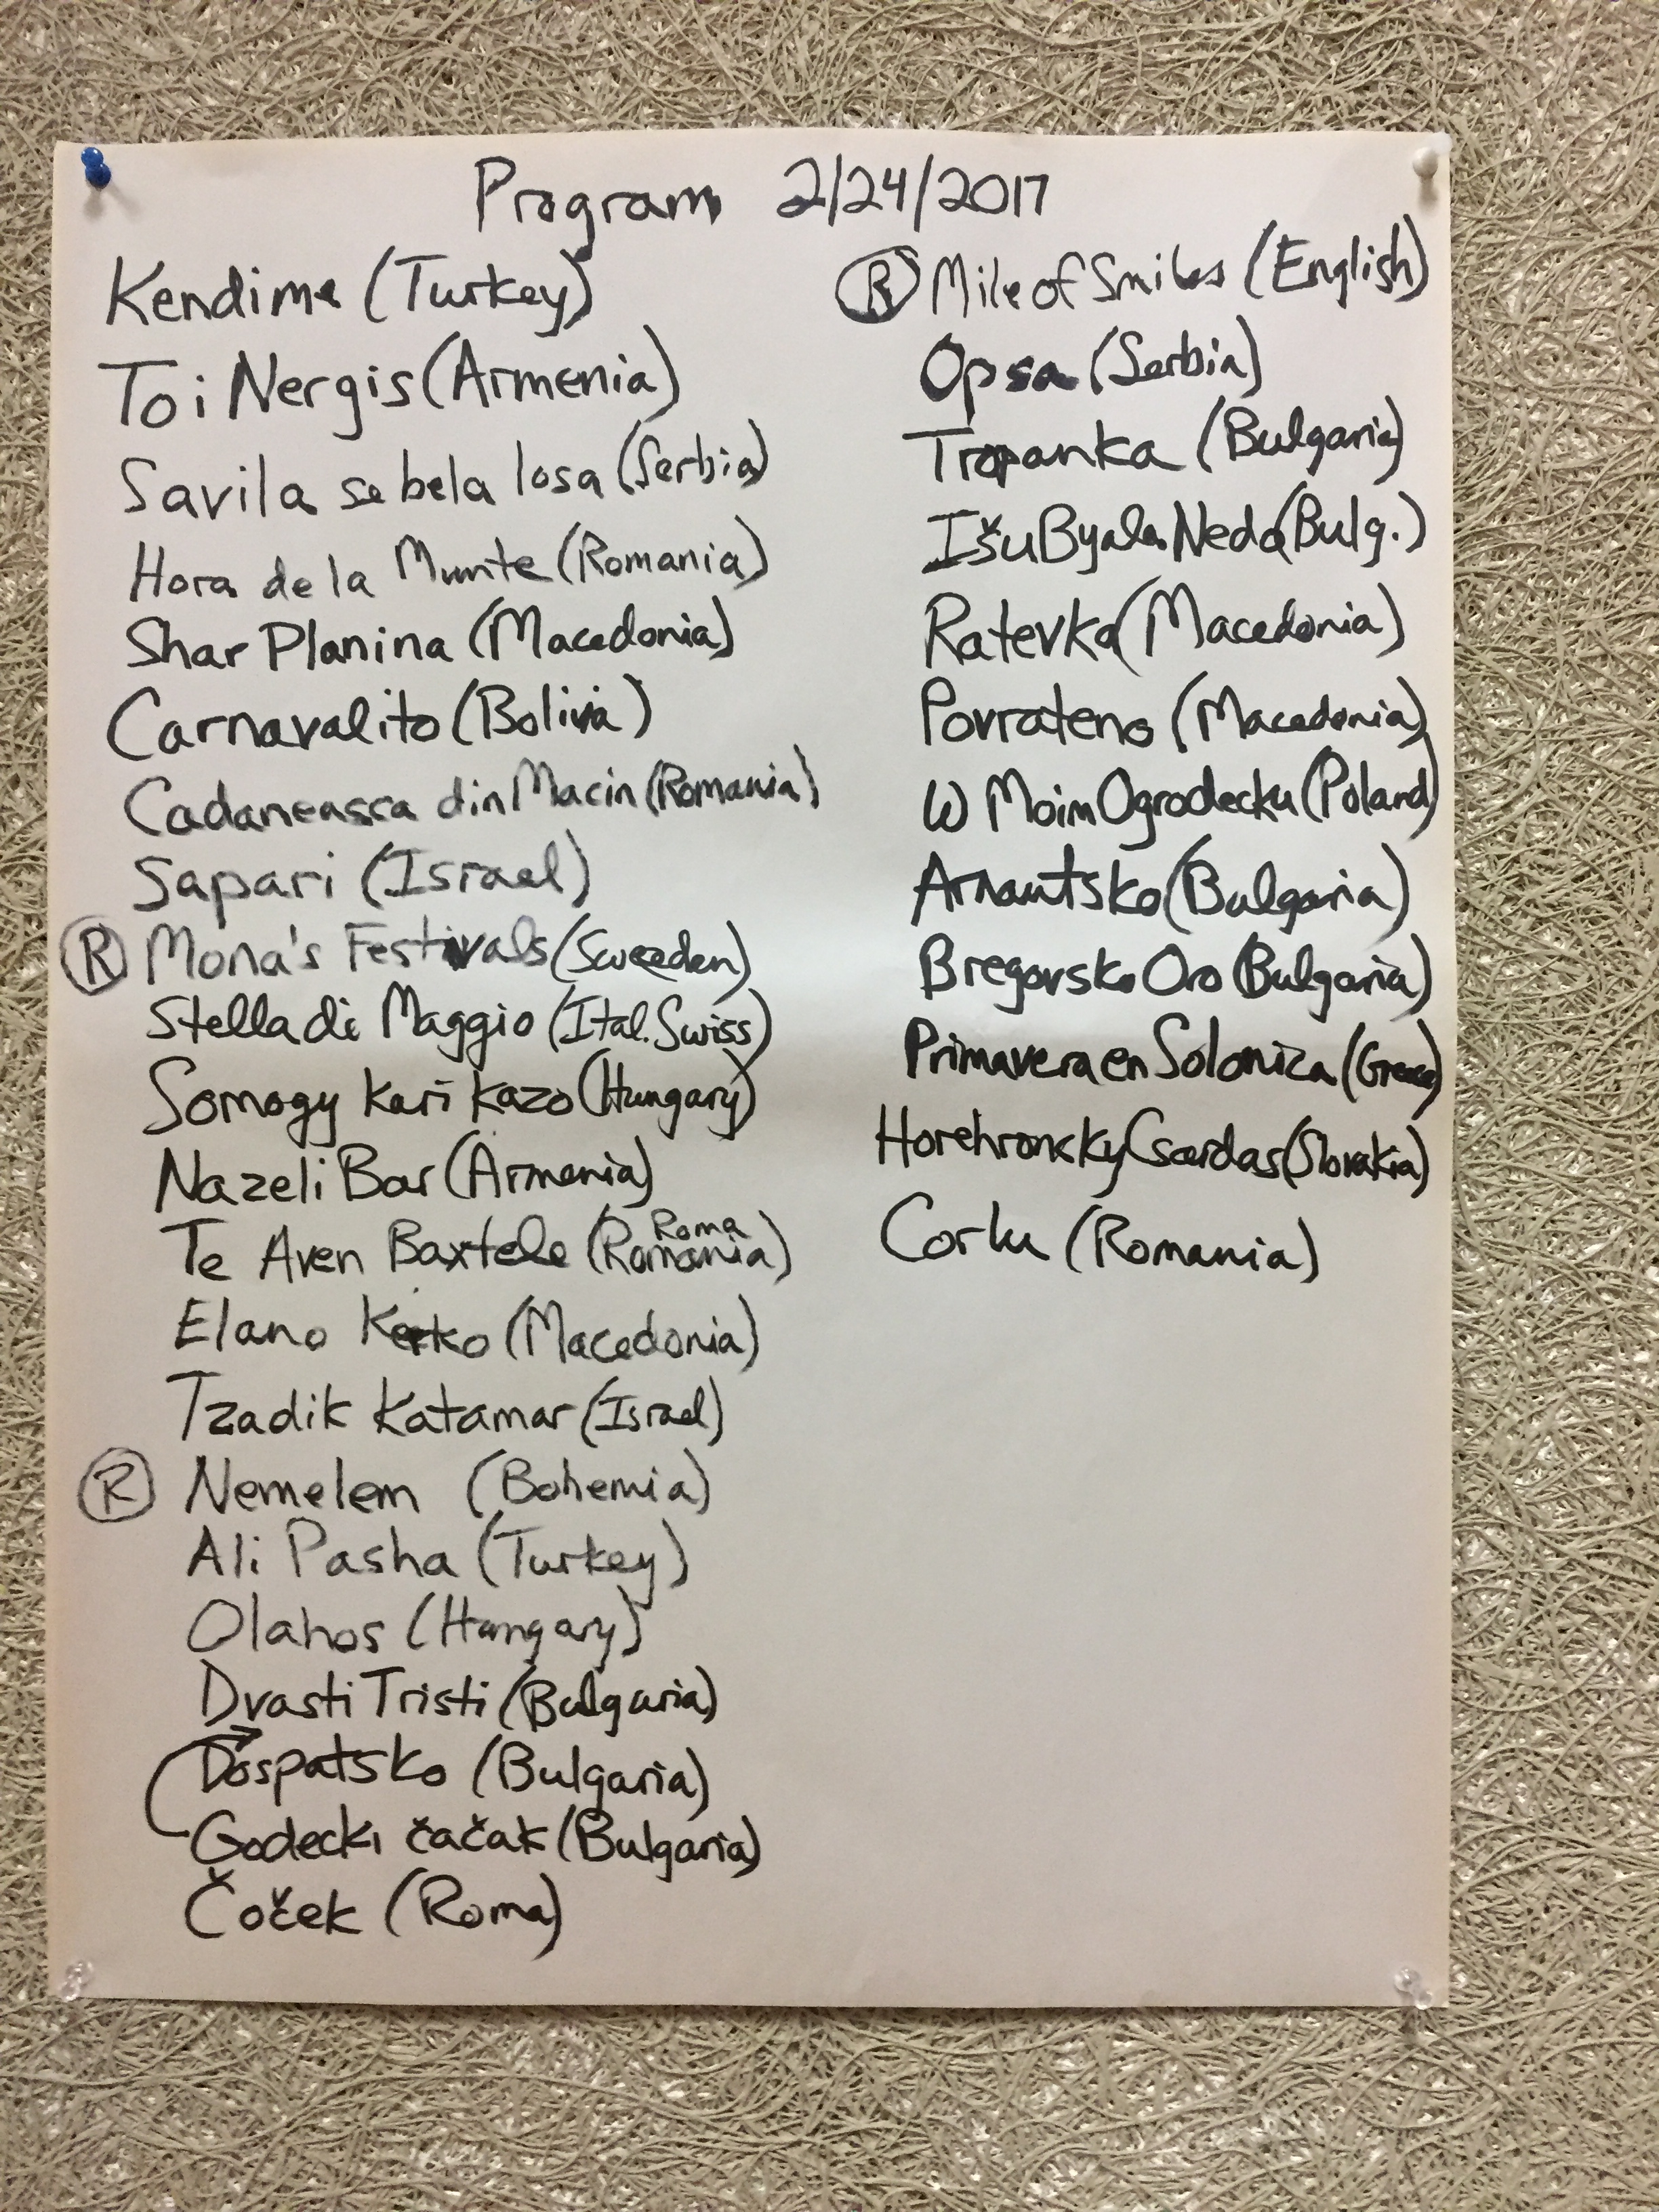 Program 2/24/2017
Kendime (Turkey)
Toi Nergis (Armenia)
Savila se bela losa (Serbia)
Hora de la Munte (Romania)
Shar Planina (Macedonia)
Carnavalito (Bolivia)
Cadaneasca din Macin (Romania)
Sapari (Israel)
(R) Mona's Festivals (Sweeden)
Stella di Maggio (Ital. Swiss)
Somogy Kari Kazo (Hungary)
Nazeli Bar (Armenia)
Roma
Te Aven Baxtele (Romania)
Elano Kerko (Macedonia)
Tzadik Katamar (Israel)
(R) Nemelem (Bohemia)
Ali Pasha (Turkey)
Olahos (Hungary)
Dvasti Tristi (Bulgaria)
Dospatsko (Bulgaria)
Godecki čačak (Bulgaria)
Čoček (Roma)
(R) Mile of Smiles (English)
Opsa (Serbia)
Tropanka (Bulgaria)
Išu Byala Neda (Bulg.)
Ratevka (Macedonia)
Povrateno (Macedonia)
W Moim Ogrodecku (Poland)
Arnautsko (Bulgaria)
Bregovsko Oro (Bulgaria)
Primavera en Salonica (Greece)
Horehroncky Csardas (Slovakia)
Corlu (Romania)